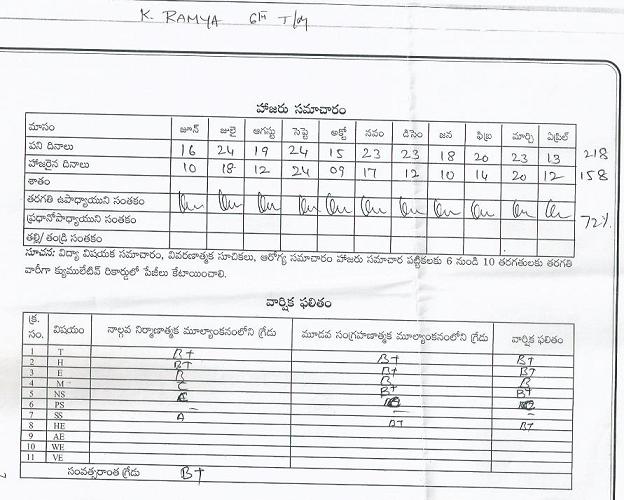 K. RAMYA 6TH T/M
హాజరు సమాచారం
మాసం జూన్ జులై ఆగస్టు సెప్టె అక్టో నవం డిసెం జన ఫిబ్ర మార్చి ఏప్రిల్
పని దినాలు 16 24 19 24 15 23 23 18 20 23 13 218
హాజరైన దినాలు 10 18 12 24 09 17 12 10 14 20 12 158
శాతం
తరగతి ఉపాధ్యాయుని సంతకం
ప్రధానోపాధ్యాయుని సంతకం 72%
తల్లి/తండ్రి సంతకం
సూచన: విద్యా విషయక సమాచారం, వివరణాత్మక సూచికలు, ఆరోగ్య సమాచారం హాజరు సమాచార పట్టికలకు 6 నుండి 10 తరగతులకు తరగతి
వారీగా క్యుములేటివ్ రికార్డులో పేజీలు కేటాయించాలి.
వార్షిక ఫలితం
క్ర. సం. విషయం నాల్గవ నిర్మాణాత్మక మూల్యాంకనంలోని గ్రేడు మూడవ సంగ్రహణాత్మక మూల్యాంకనంలోని గ్రేడు వార్షిక ఫలితం
1 T B+ B+ B+
2 H B+
3 E B B+ B+
4 M C B B
5 NS B+ B+
6 PS
7 SS A
8 HE A+ B+
9 AE
10 WE
11 VE
సంవత్సరాంత గ్రేడు B+